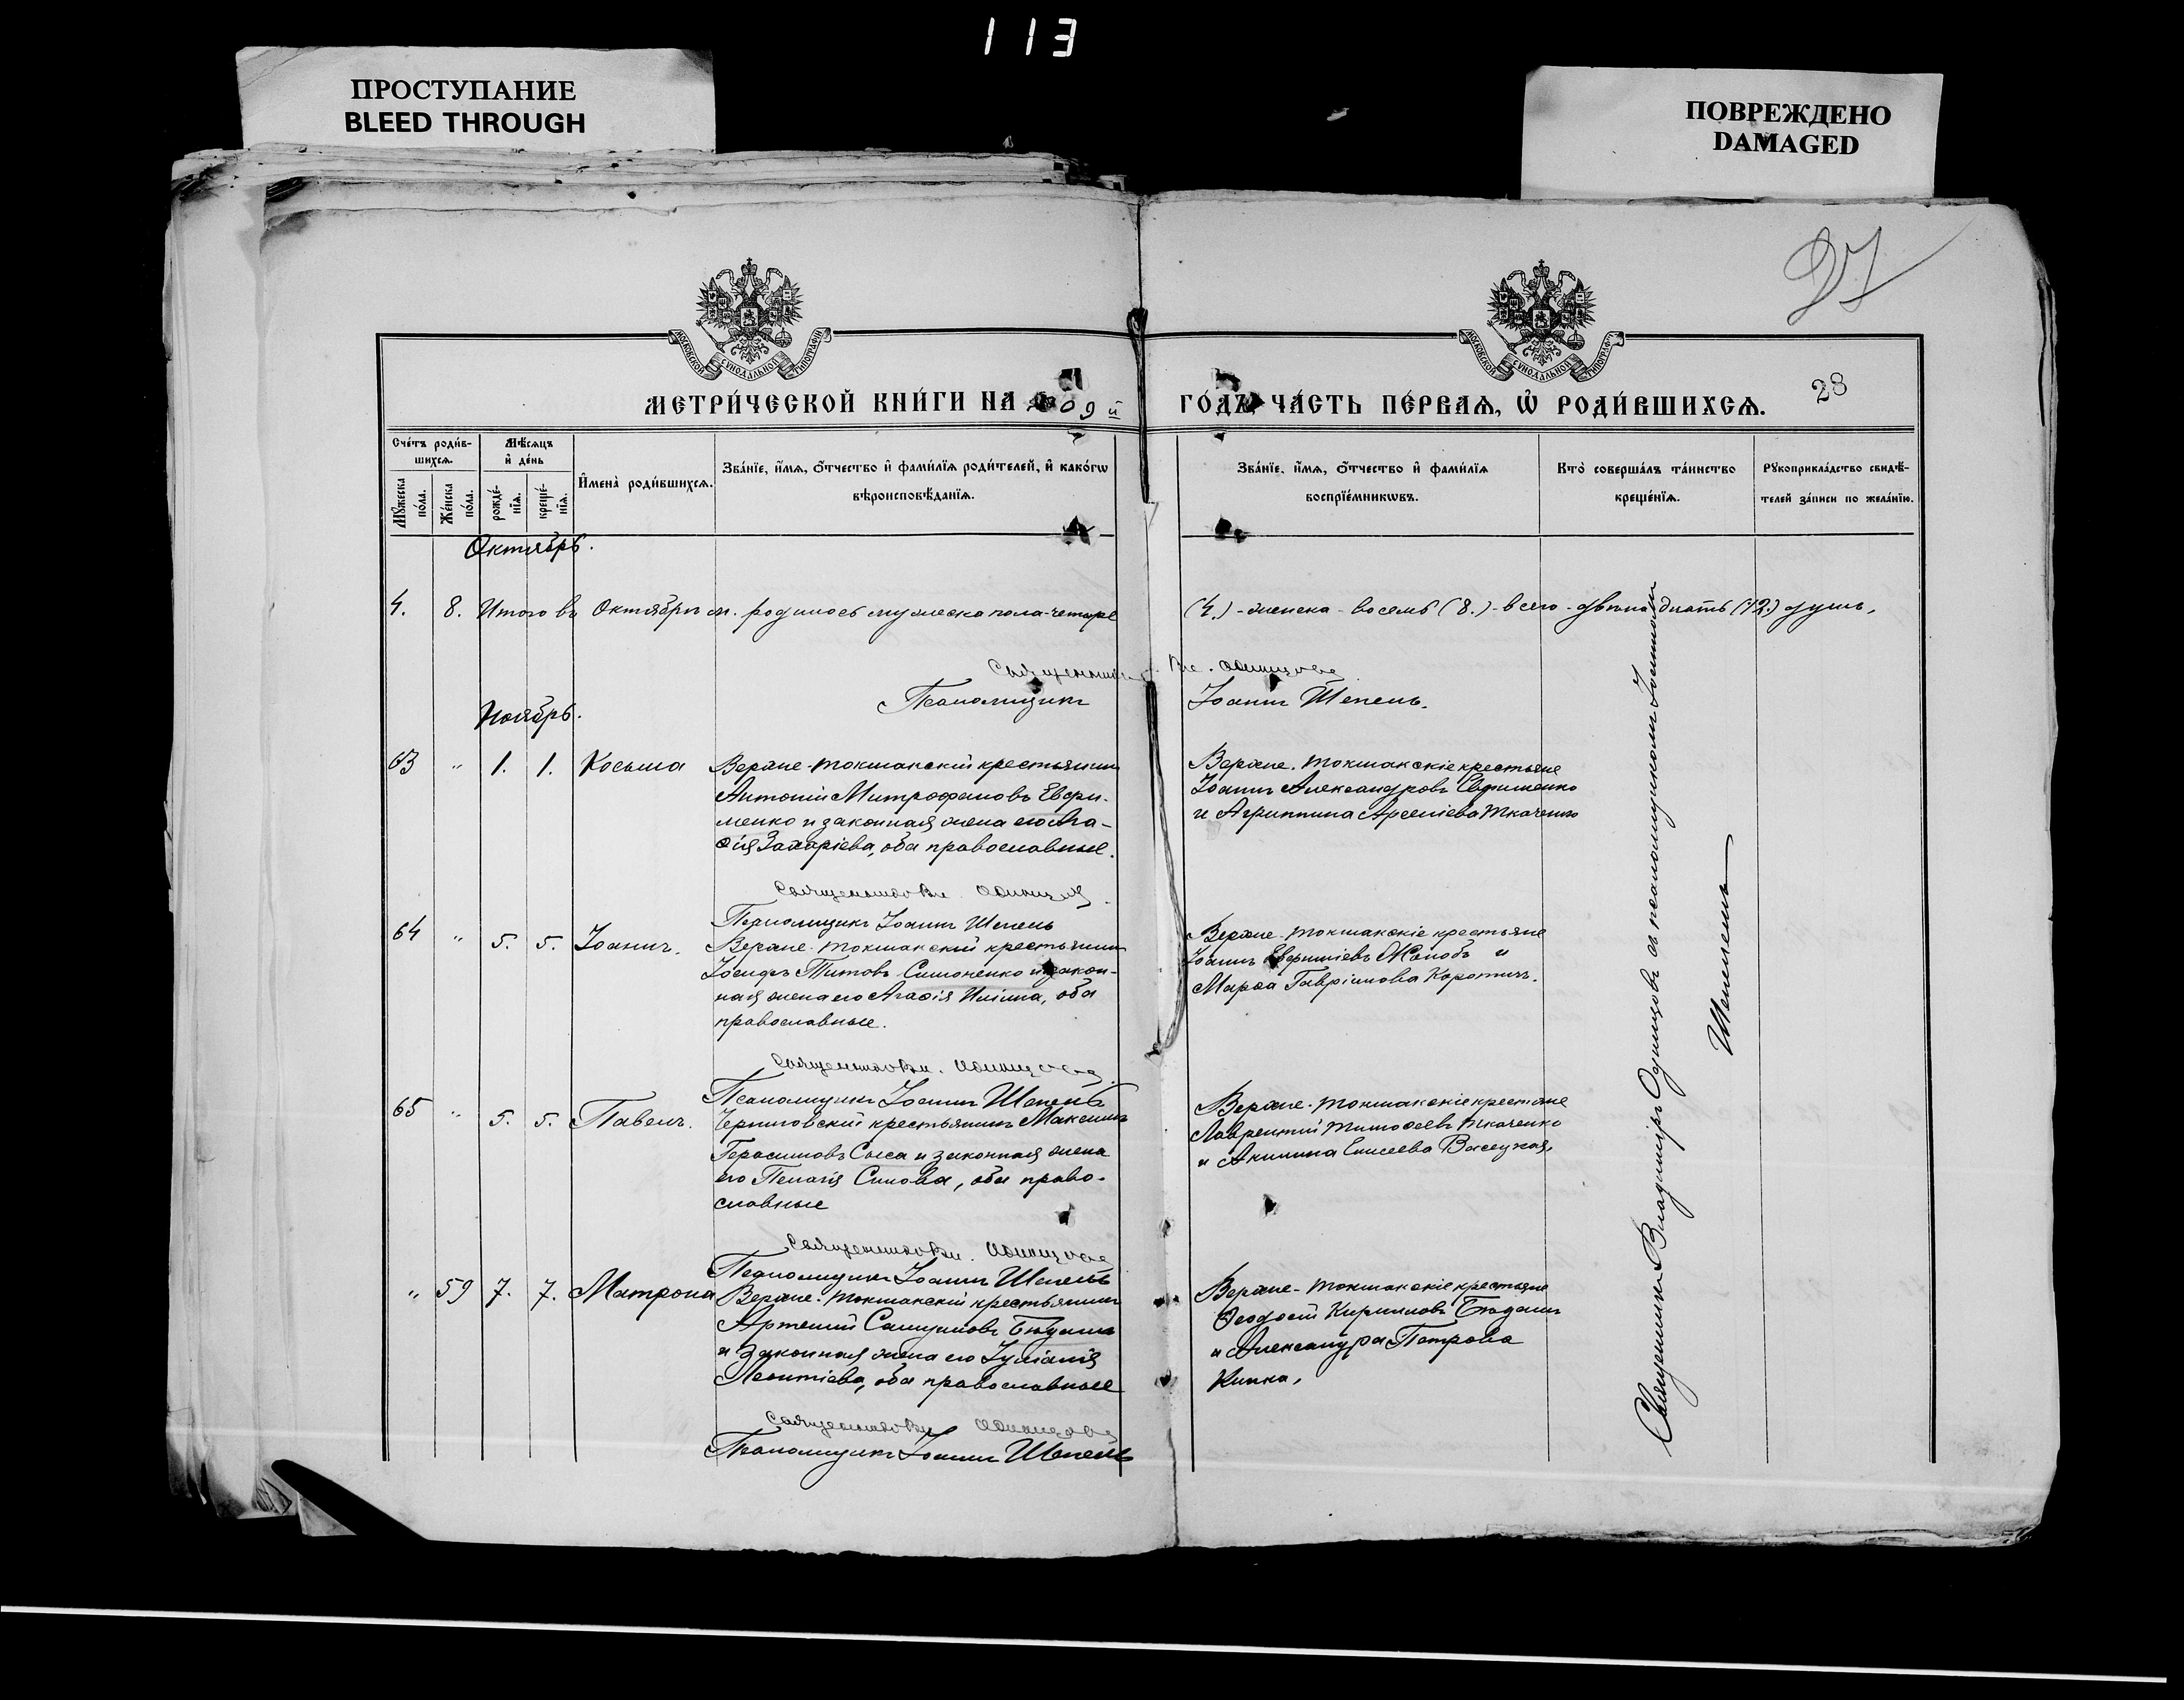 113
ПРОСТУПАНИЕ
BLEED THROUGH
ПОВРЕЖДЕНО
DAMAGED
27
МОСКОВСКОЙ СѴНОДАЛЬНОЙ ТИПОГРАФІИ
МОСКОВСКОЙ СѴНОДАЛЬНОЙ ТИПОГРАФІИ
МЕТРИ́ЧЕСКОЙ КНИ́ГИ НА 09й ГО́ДЪ, ЧА́СТЬ ПЕ́РВАѦ, Ѡ҆ РОДИ́ВШИХСѦ.
28
Сче́тъ роди́в-
шихсѧ.
Мꙋ́жеска по́ла.
Же́нска по́ла.
Мѣ́сѧцъ
и҆ де́нь
рожде́-
нїѧ.
креще́-
нїѧ.
И҆мена̀ роди́вшихсѧ.
Зва́нїе, и҆́мѧ, ѻ҆́тчество и҆ фами́лїѧ роди́телей, и҆ како́гѡ
вѣроисповѣ́данїѧ.
Зва́нїе, и҆́мѧ, ѻ҆́тчество и҆ фами́лїѧ
воспрїе́мникѡвъ.
Кто̀ соверша́лъ та́инство
креще́нїѧ.
Рꙋкоприкла́дство свидѣ́-
телей за́писи по жела́нїю.
Октябрь.
4. 8. Итого въ Октябрѣ м. родилось мужеска пола-четыре (4.) - женска - восемь (8.) - всего - двѣнадцать (12.) душъ,
Священникъ Вл. Одинцовъ
Псаломщикъ Іоаннъ Шепель.
Ноябрь.
63 " 1. 1. Косьма
Верхне-Токмакскій крестьянинъ
Антоній Митрофановъ Ефи-
менко и законная жена его Ага-
ѳія Захаріева, оба православные.
Верхне-Токмакскіе крестьяне
Іоаннъ Александровъ Ефименко
и Агриппина Арсеніева Ткаченко
Священникъ Вл. Одинцовъ
Псаломщикъ Іоаннъ Шепель
64 " 5. 5. Іоаннъ.
Верхне-Токмакскій крестьянинъ
Іосифъ Титовъ Симоненко и закон-
ная жена его Агаѳія Иліина, оба
православные.
Верхне-Токмакскіе крестьяне
Іоаннъ Евфиміевъ и
Марѳа Гавріилова Коротичъ.
Священникъ Вл. Одинцовъ
Псаломщикъ Іоаннъ Шепель
65 " 5. 5. Павелъ.
Черниговскій крестьянинъ Максимъ
Герасимовъ Сыса и законная жена
его Пелагія Силова, оба право-
славные
Верхне-Токмакскіе крестьяне
Лаврентій Тимоѳеевъ Ткаченко
и Акилина Елисеева Васецкая,
Священникъ Вл. Одинцовъ
Псаломщикъ Іоаннъ Шепель
" 59 7. 7. Матрона
Верхне-Токмакскій крестьянинъ
Артемій Самуиловъ
и законная жена его Іуліанія
Леонтіева, оба православные
Верхне-Токмакскіе крестьяне
Ѳеодосій Кирилловъ
и Александра Петрова
Кипка,
Священникъ Вл. Одинцовъ
Псаломщикъ Іоаннъ Шепель
Священникъ Владиміръ Одинцовъ съ псаломщикомъ Іоанномъ
Шепелемъ